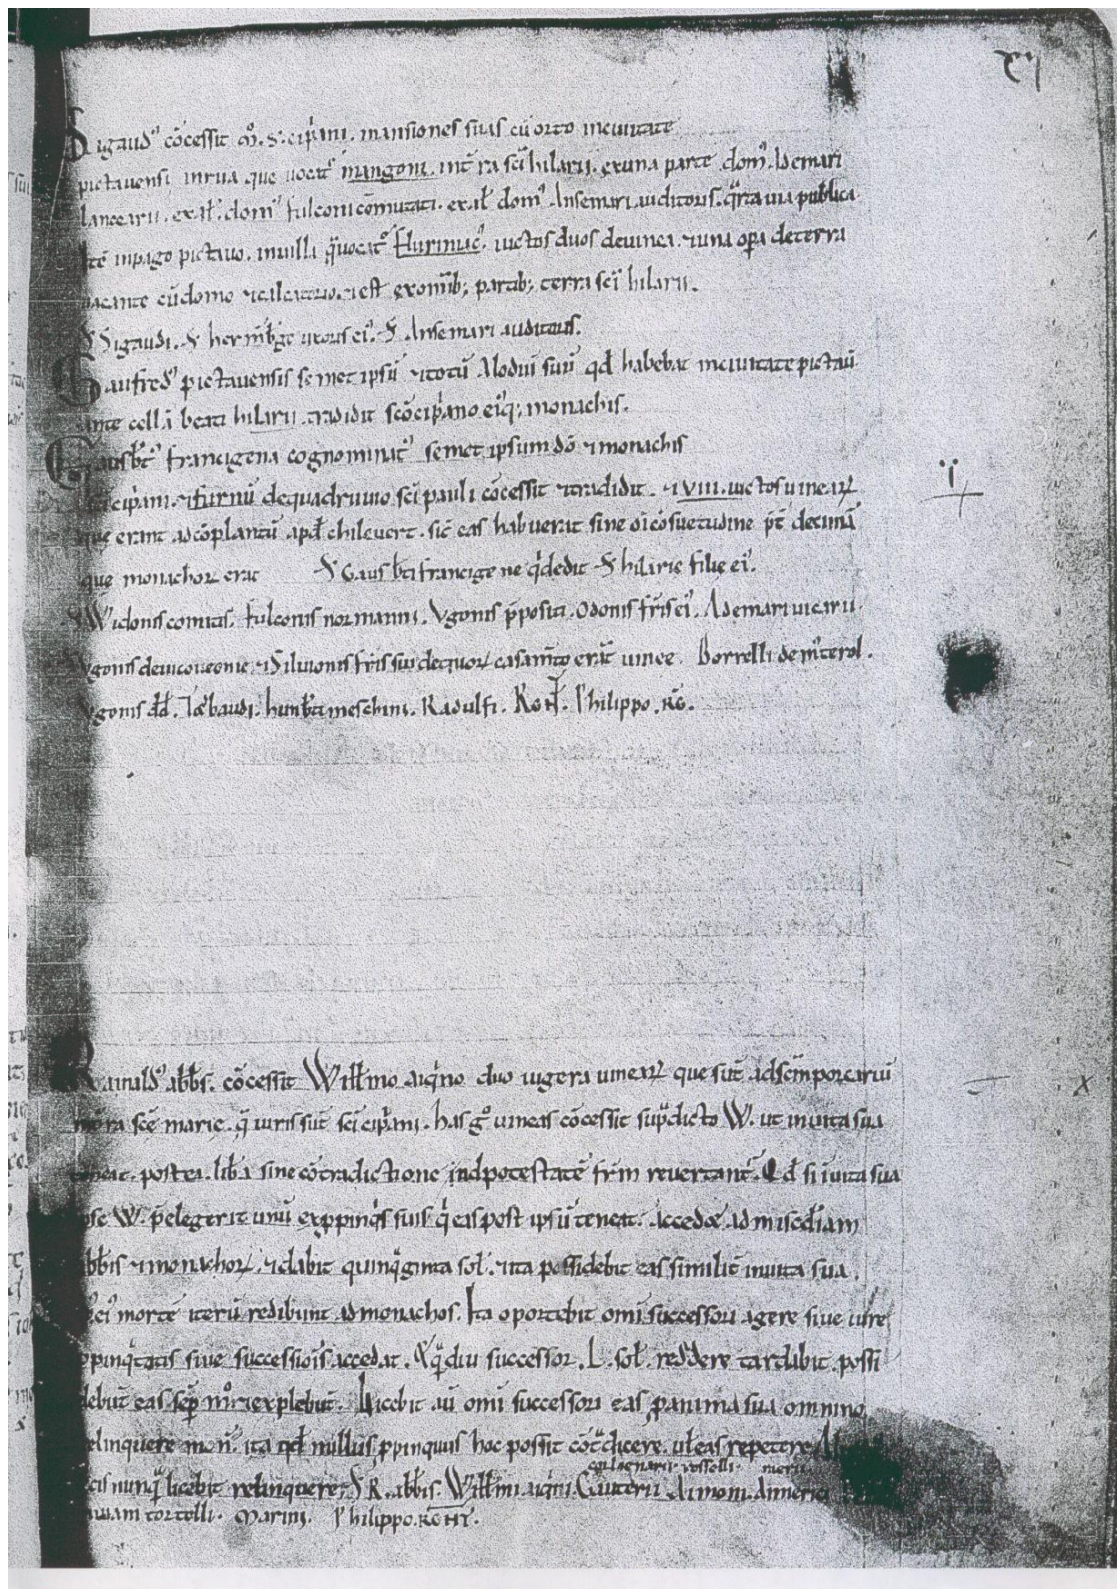 xij
Sigaudꝰ cõcessit mõ. S. cip̃ani. mansiones suas cũ orto inciuitate
pictauensi inrua que uocat᷑ mangoni. int̃ ra sc̃i hilarii. ex una parte domꝰ Ademari
lancearii. ex al̃. domꝰ fulconi cõmutati. ex al̃ domꝰ Ansemari auditoris. q̃rta uia publica.
Itẽ inpago pictauo. inuilla q̃ uocat᷑ Fluriniacꝰ. iuctos duos deuinea. & una oꝑa deterra
uacante cũ domo & calcatorio. & est exomĩb; partib; terra sc̃i hilarii.
S Sigaudi. S hermb̃ge uxoris eiꝰ. S. Ansemari auditoris.
Gaufredꝰ pictauensis semet ipsũ & totũ Alodiũ suũ qđ habebat inciuitate pictaũ.
ante cellã beati hilarii tradidit sc̃o cip̃ano eiꝰq; monachis.
Gausb̃tꝰ francigena cognominatꝰ semet ipsum dõ & monachis
sc̃i cip̃ani. & furnũ dequadruuio sc̃i pauli cõcessit & tradidit. & VIII. iuctos uinearꝝ
que erant adcõplantũ apđ chileuert. sic̃ eas habuerat sine oĩ cõsuetudine p̃t decimã
que monachorꝝ erat S Gausb̃ti francigene q̃ dedit S hilarie filie eiꝰ.
S Widonis comitis. Fulconis normanni. Vgonis p̃positi. Odonis fr̃is eiꝰ. Ademari uicarii.
Vgonis & Siluionis fr̃is sui dequorꝝ casam̃to erãt uinee. Borrelli de
Vgonis đđ. Tetbaudi. humb̃ti meschini. Radulfi. REGÑ. Philippo. RG̃.
Rainaldꝰ abb̃s. cõcessit Will̃mo aiq̃no duo iugera uinearꝝ que sũt ad sc̃m porcariũ
int̃ ra sc̃e marie. q̃ iuris sũt sc̃i cip̃ani. has g̊ uineas cõcessit sup̃dicto W. ut inuita sua
teneat. postea. lib̃a sine cõtradictione inđ potestatẽ fr̃m reuertant᷑. Qđ si ĩuita sua
ipse W. p̃elegerit unũ ex ꝓpinq̃s suis q̃ eas post ipsũ teneat. Accedat ad misc̃diam
abb̃is & monachorꝝ. & dabit quinq̃ginta sol̃. & ita possidebit eas similit̃ inuita sua.
P̃ eiꝰ mortẽ iterũ redibunt ad monachos. Ita oportebit omĩ successori agere siue iure
ꝓpinq̃tatis siue successiõis accedat. & q̃ diu successor. L. sol̃. reddere tardabit. possi
debũt eas. sẽp mõ. & explebũt. Licebit aũ omĩ successori eas ꝓ anima sua omnino
relinquere moñ. ita qđ nullus ꝓpinquus hoc possit cõtr̃dicere. ul̃ eas repetere
nunq̃ licebit relinquere. S R. abb̃is. Will̃mi aiq̃ni. Gauterii rosselli. Aimoni. Aimerici
tortelli. Marini. Philippo. REGÑ.